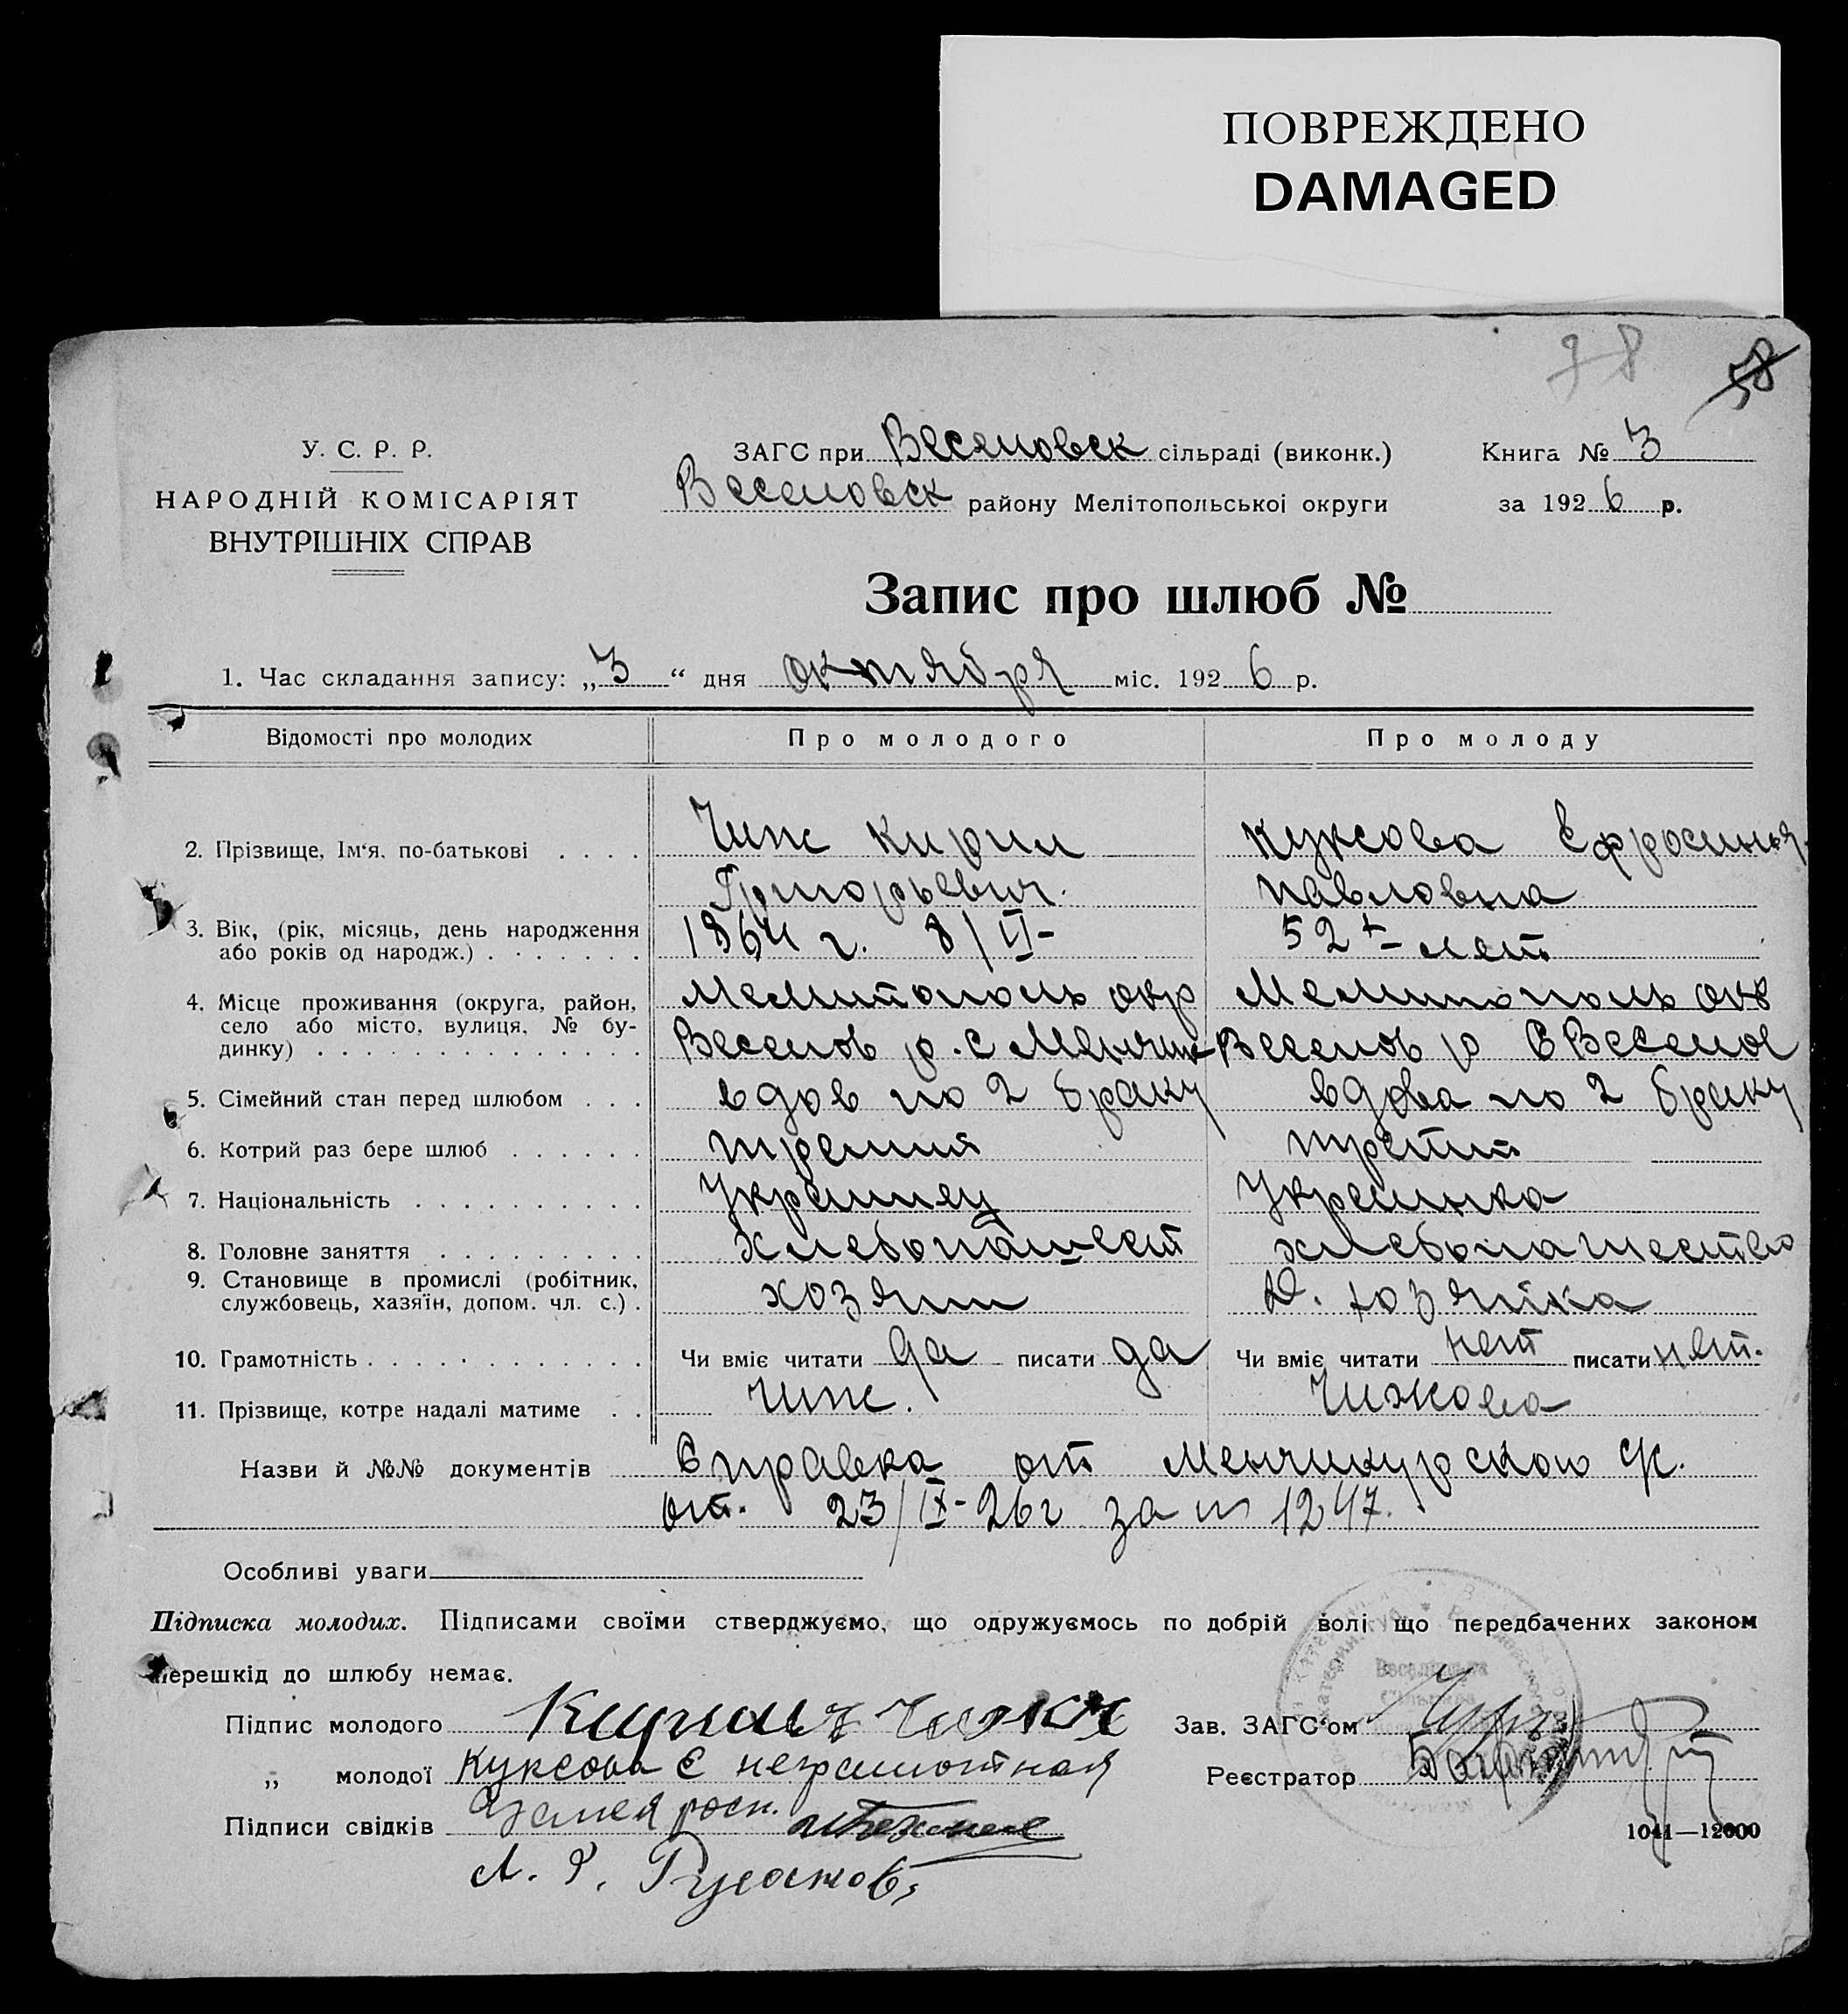 ПОВРЕЖДЕНО
DAMAGED
58
У. С. Р. Р.
НАРОДНІЙ КОМІСАРІЯТ
ВНУТРІШНІХ СПРАВ
ЗАГС при Веселовск сільраді (виконк.)
Веселовск району Мелітопольської округи
Книга № 3
за 1926 р.
Запис про шлюб №
1. Час складання запису: „3“ дня октября міс. 1926 р.
Відомості про молодих Про молодого Про молоду
2. Прізвище, Ім‘я, по-батькові . . . . Чиж Кирил Куксова Ефросинья
Григорьевич. Павловна
3. Вік, (рік, місяць, день народження 1864 г. 8/VI- 52х- лет
або років од народж.) . . . . . . .
4. Місце проживання (округа, район, Мелитополь окр Мелитополь окр
село або місто, вулиця, № бу- Веселов р. с Менчик Веселов р С Веселое
динку) . . . . . . . . . . . . . . .
5. Сімейний стан перед шлюбом . . . вдов по 2 браку вдова по 2 браку
6. Котрий раз бере шлюб . . . . . . третий третий
7. Національність . . . . . . . . . . Украинец Украинка
8. Головне заняття . . . . . . . . . хлебопашест хлебопашество
9. Становище в промислі (робітник, хозяин Д. хозяйка
службовець, хазяїн, допом. чл. с.) .
10. Грамотність . . . . . . . . . . . . Чи вміє читати да писати да Чи вміє читати нет писати нет.
11. Прізвище, котре надалі матиме . . Чиж. Чижова
Назви й №№ документів Справка от Менчикурского
от. 23/IX-26г за № 1247.
Особливі уваги
Підписка молодих. Підписами своїми стверджуємо, що одружуємось по добрій волі що передбачених законом
перешкід до шлюбу немає.
Підпис молодого Кирилъ Чижъ Зав. ЗАГС‘ом
„ молодої Куксова Е неграмотная Реєстратор
Підписи свідків
1041—12000